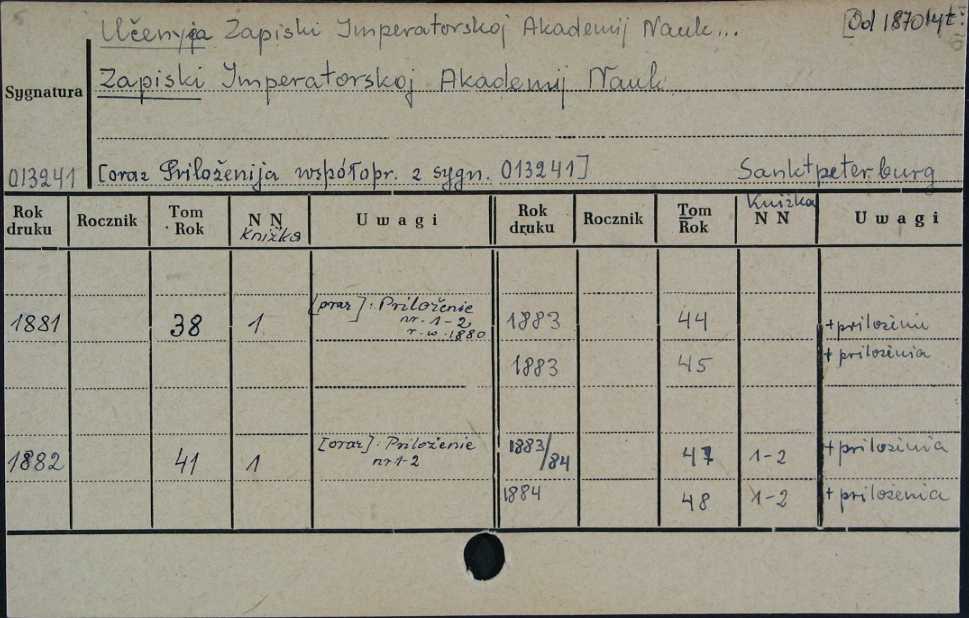 Učenyja Zapiski Imperatorskoj Akademij Nauk... [Od 1870
Zapiski Imperatorskoj Akademij Nauk
Sygnatura
013241 [oraz Priloženija współopr. z sygn. 013241] Sanktpeterburg
Rok druku Rocznik Tom Rok N N Knižka Uwagi Rok druku Rocznik Tom Rok Knižka N N Uwagi
1881 38 1 [oraz]. Priloženie nr. 1-2 r. w. 1880 1883 44 +priloženie
1883 45 + priloženia
1882 41 1 [oraz]. Priloženie nr 1-2 1883/84 47 1-2 + priloženia
1884 48 1-2 + priloženia